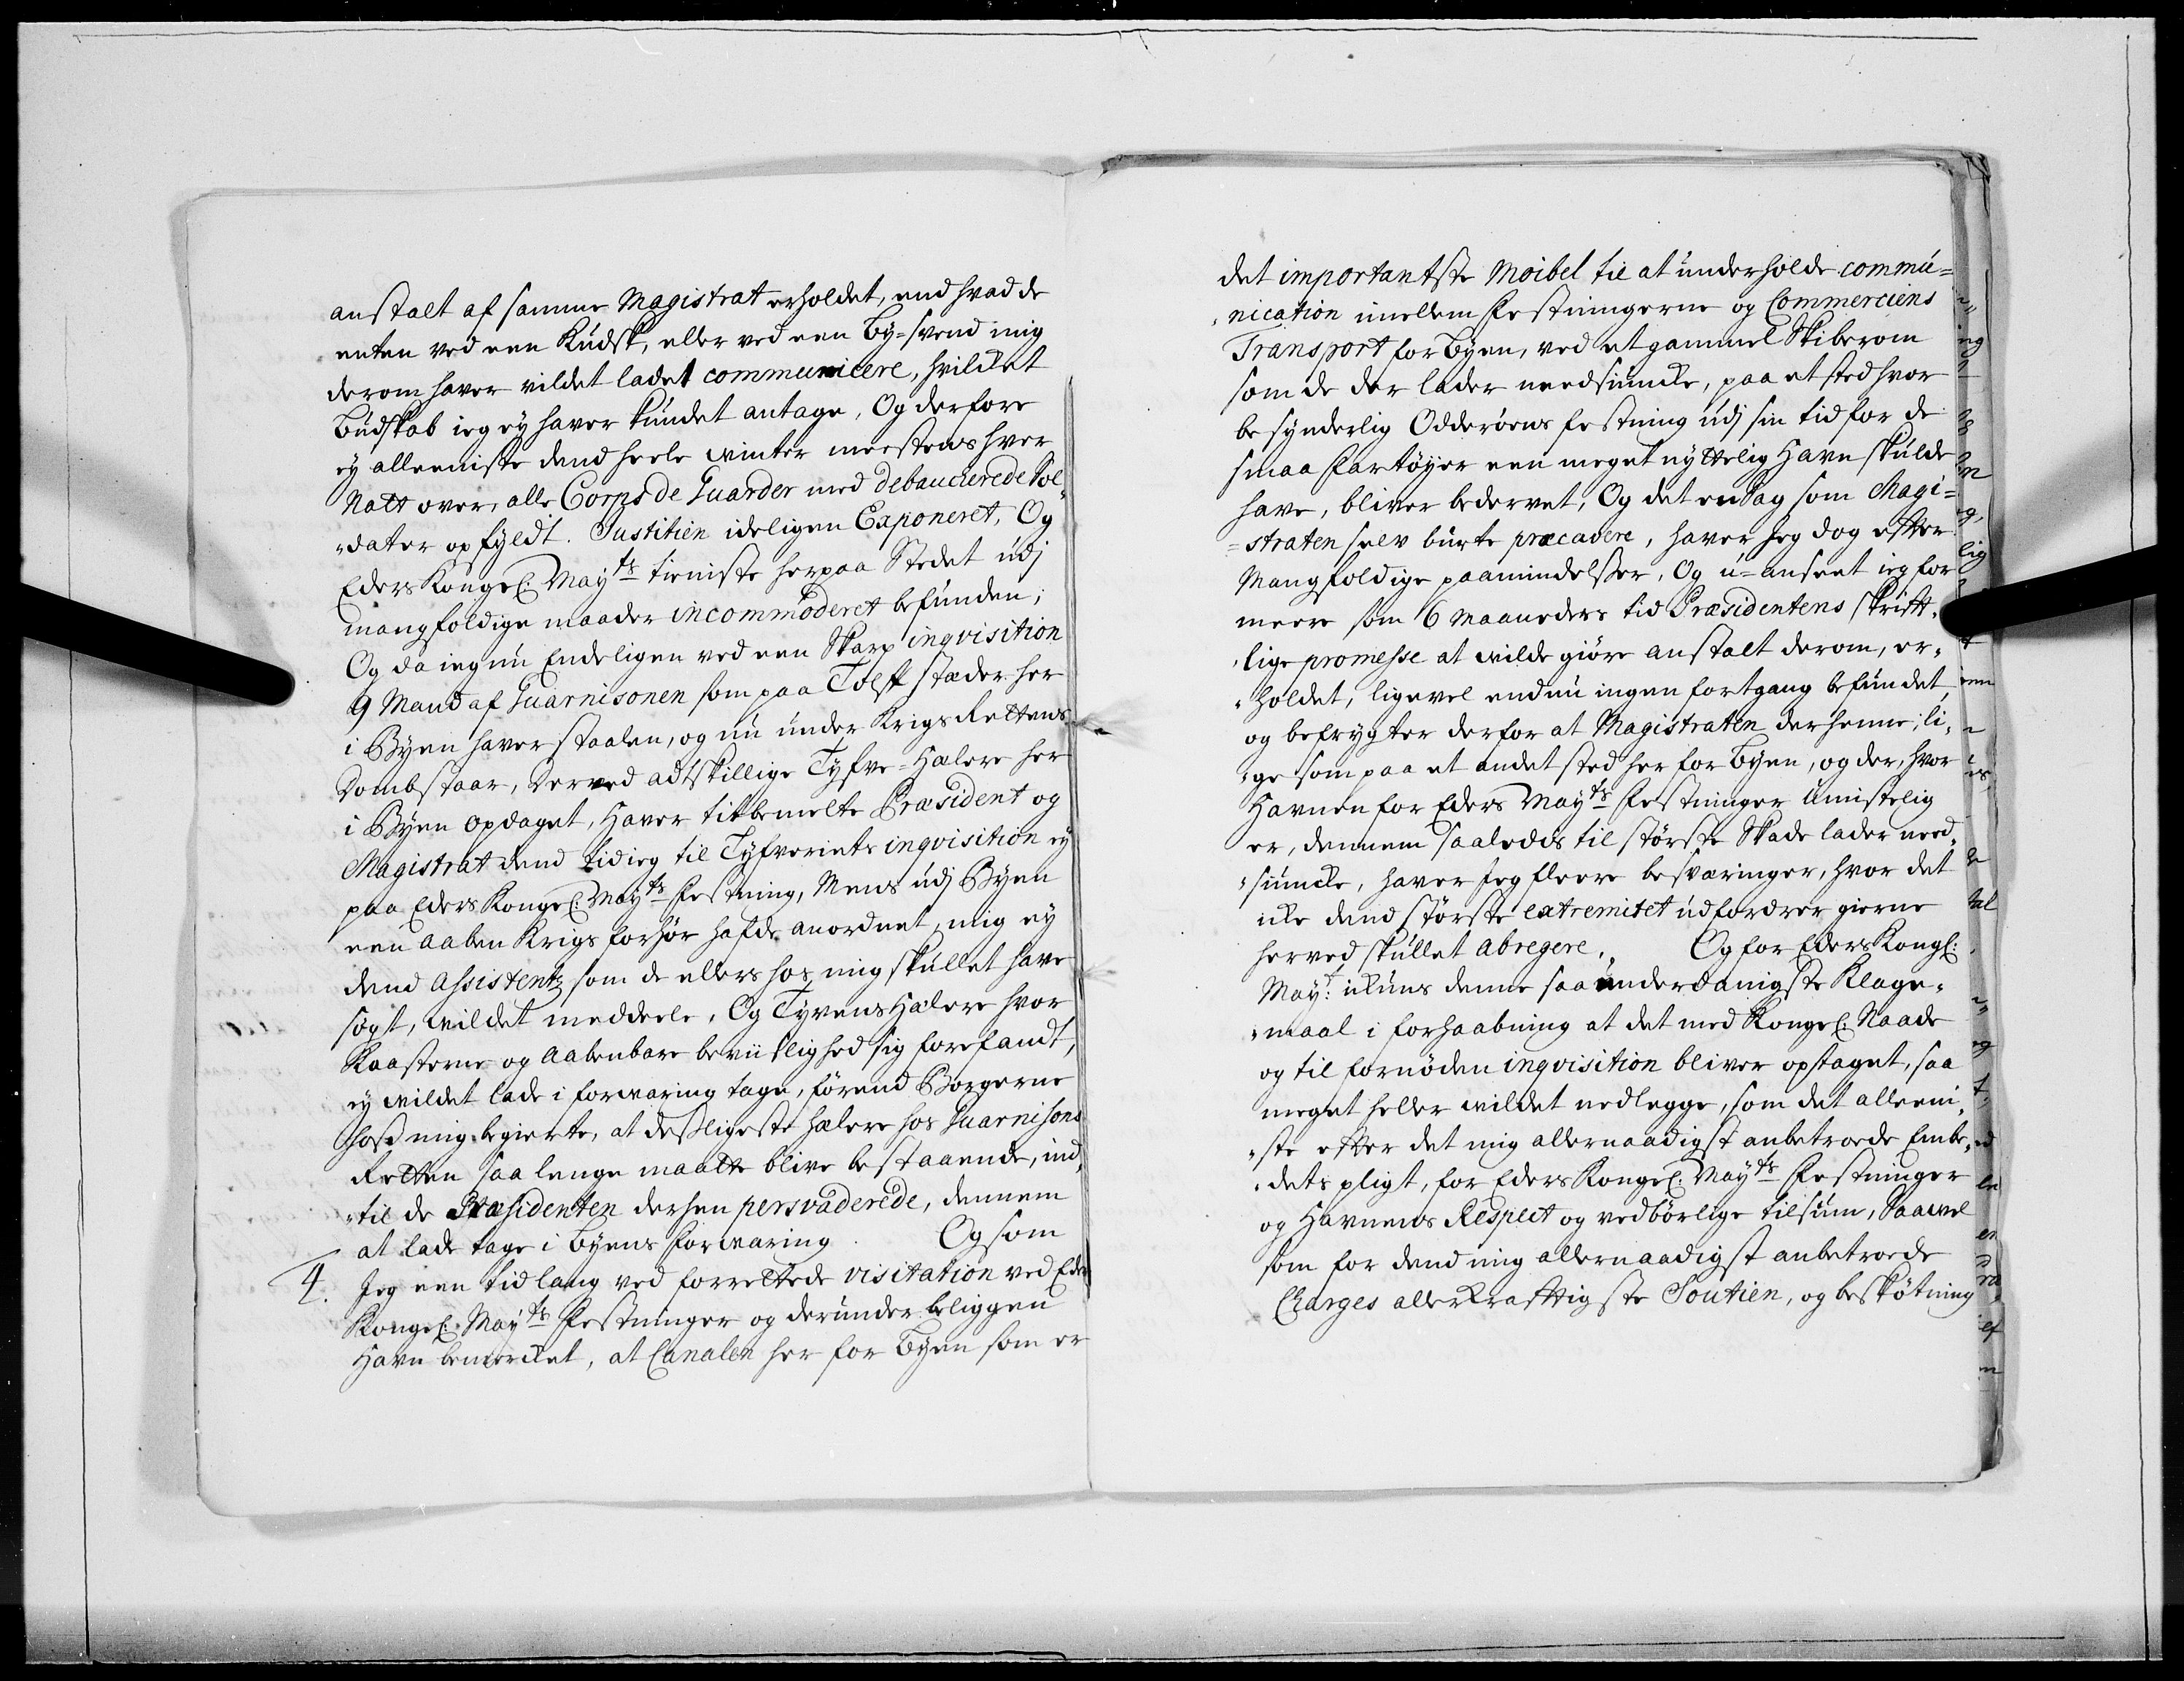 anstalt af samme Magistrat erholdet, end hvad de
enten ved een Kudsk, eller ved een By=svend mig
derom haver vildet ladet communicere, hvilcket
Budskab ieg ey haver kundet antage, Og derfore
ey alleeniste dend heele winter meestens hver
Natt over, alle Corps de Guarder med debaucherede Sol„
„dater opfyldt. Justitien ideligen Exponeret, Og
Eders Kongel: Mayts tieniste her paa Stedet udj
mangfoldige maader incommoderet befunden;
Og da ieg nu Endeligen ved een Skarp inqvisition
9 Mand af Guarnisonen som paa Tolff stæder her
i Byen haver staalen, og nu under Krigs Rettens
Domb staar, derved adskillige Tyfve=Hælere her
i Byen opdaget, Haver titbemelte Præsident og
Magistrat dend tid ieg til Tyfveriets inqvisition ey
paa Eders Kongel: Mayts Festning, Mens udj Byen
een aaben Krigs forhør hafde anordnet, mig ey
dend Assistentz som de ellers hos mig skullet have
søgt, wildet meddeele, Og Tyvens Hælere hvor
Kaasterne og aabenbare beviislighed sig forefandt,
ey wildet lade i forwaring tage, førend Borgerne
hoss mig begierte, at desligeste hælere hos Guarnisons
Retten saa lenge maatte blive bestaaende, ind„
„til de Præsidenten derhen persvaderede, dennem
at lade tage i Byens forwaring. Og som
4. Jeg een tid lang ved forrettede visitation ved Eders
Kongel: Mayts Festninger og derunder beliggen
Havn bemercket, at Canalen her for Byen som er
det importantste Moibel til at underholde commu=
„nication imellem Festningerne og Commerciens
Transport for Byen, ved et gammel Skiberom
som de der lader needsuncke, paa et sted hvor
besynderlig Odderøens Festning udj sin tid for de
smaa Fartøyer een meget nyttelig Havn skulde
have, bliver bedervet, Og det en Sag som Magi=
=straten selv burte præcavere, haver Jeg dog efter
Mangfoldige paamindelser, Og u=anseet ieg for
meere som 6 Maaneders tid Præsidentens skrift„
„lige promesse at wilde giøre anstalt derom, er„
„holdet, ligevel endnu ingen fortgang befundet,
og befrygter derfor at Magistraten derhenne, li„
„ge som paa et andet sted her for Byen, og der, hvor
Havnen for Eders Mayts Festninger umistelig
er, dennem saaledes til største Skade lader need„
„suncke, haver Jeg fleere besværinger, hvor det
icke dend største extremitet udfordrer gierne
herved skullet abregere. Og for Eders Kongl:
Mayt: ickuns denne saa underdanigste Klage„
„maal i forhaabning at det med Kongel: Naade
og til fornøden inqvisition bliver optaget, saa
meget heller wildet nedlegge, som det alleeni„
„ste efter det mig allernaadigst anbetroede Embe„
„dets pligt, for Eders Kongel: Mayts Festninger
og Havnens Respect og vedbørlige tilsiun, Saawel
som for dend mig allernaadigst anbetroede
Charges allerkrafftigste Soutien, og beskøtning